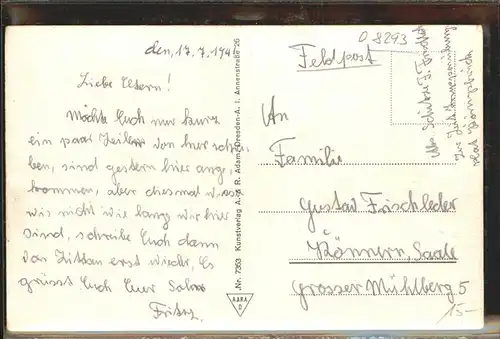 den, 17.7.194
Liebe Eltern!
Möchte Euch nur kurz
ein paar Zeilen von hier schrei
ben, sind gestern hier ange
kommen, aber diesmal wissen
wir nicht wie lang wir hier
sind, schreibe Euch dann
von Zittau erst wieder, Es
grüsst Euch Euer Sohn
Fritz.
Nr. 7253 Kunstverlag A. & R. Adam, Dresden-A. I. Annenstraße 26
AARA
D
Feldpost
08293
Abs. Schütze F. Frischleder
An
Familie
Gustav Frischleder
Könnern, Saale
Grosser Mühlberg 5
15-